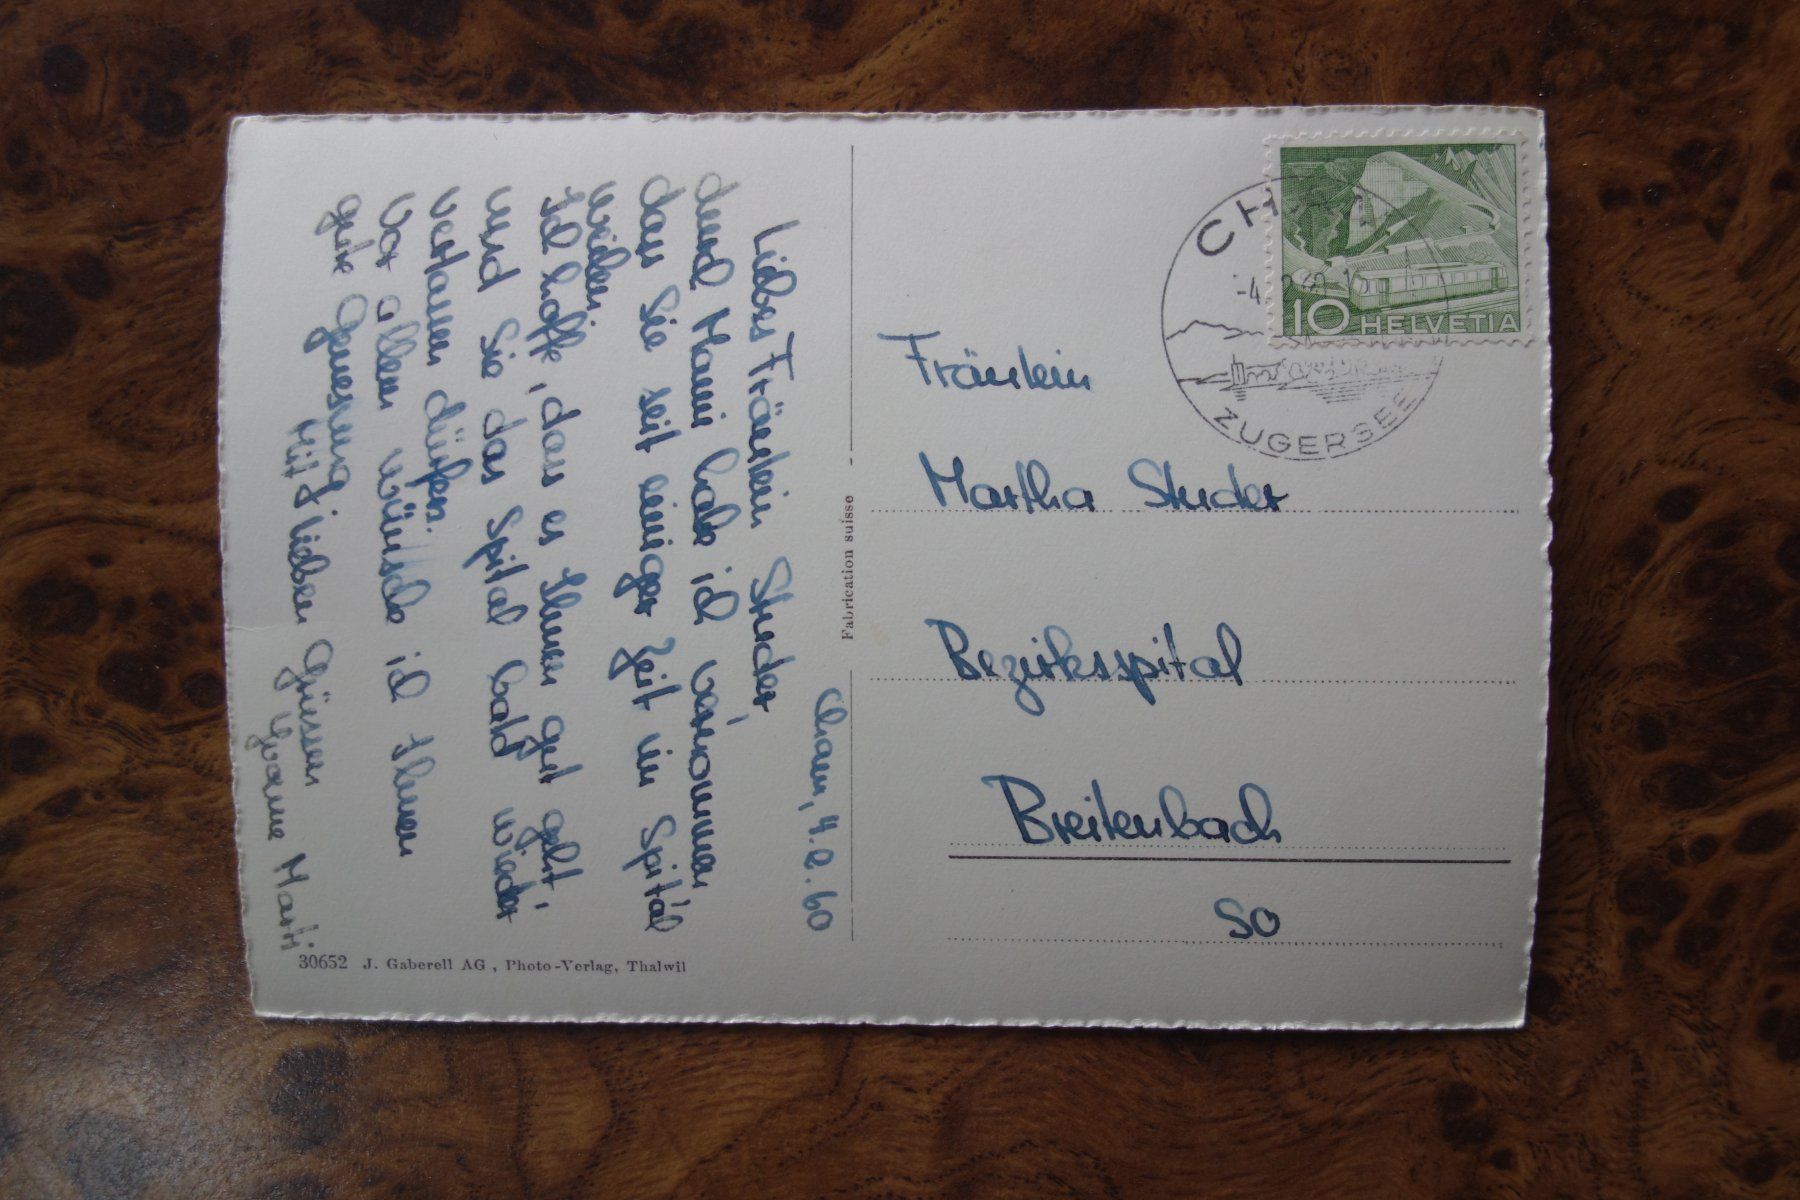 Cham, 4.2.60
Liebes Fräulein Studer,
durch Mami habe ich vernommen
dass Sie seit einiger Zeit im Spital
weilen.
Ich hoffe, dass es Ihnen gut geht,
und Sie das Spital bald wieder
verlassen dürfen.
Vor allem wünsche ich Ihnen
gute Genesung
Mit lieben Grüssen
Yvonne Marti
30652 J. Gaberell AG, Photo-Verlag, Thalwil
Fabrication suisse
10 HELVETIA
ZUGERSEE
Fräulein
Martha Studer
Bezirksspital
Breitenbach
SO